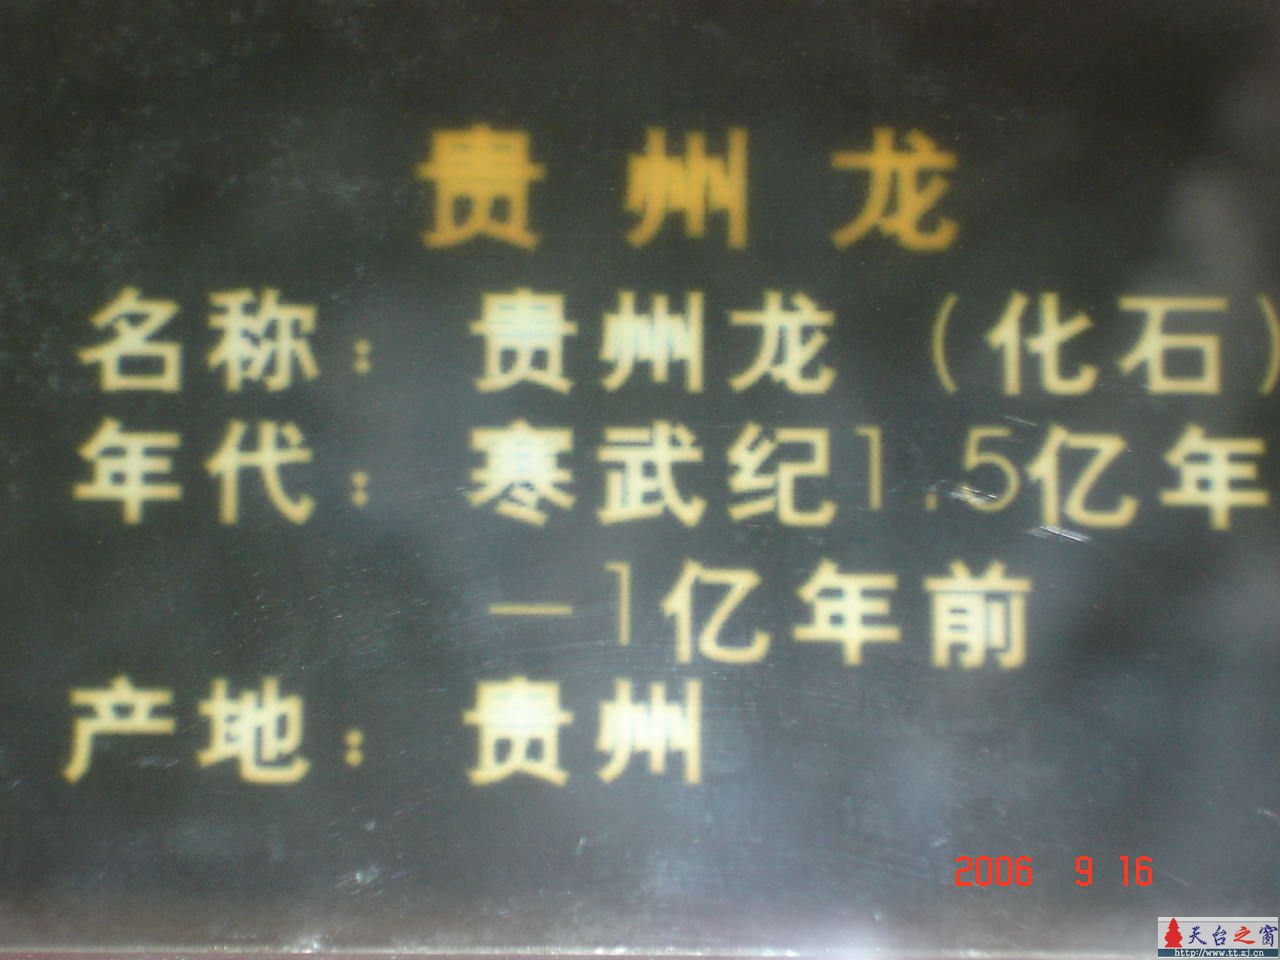 贵州龙
名称：贵州龙（化石）
年代：寒武纪1.5亿年
—1亿年前
产地：贵州
2006 9 16
天台之窗
http://www.tt.zj.cn